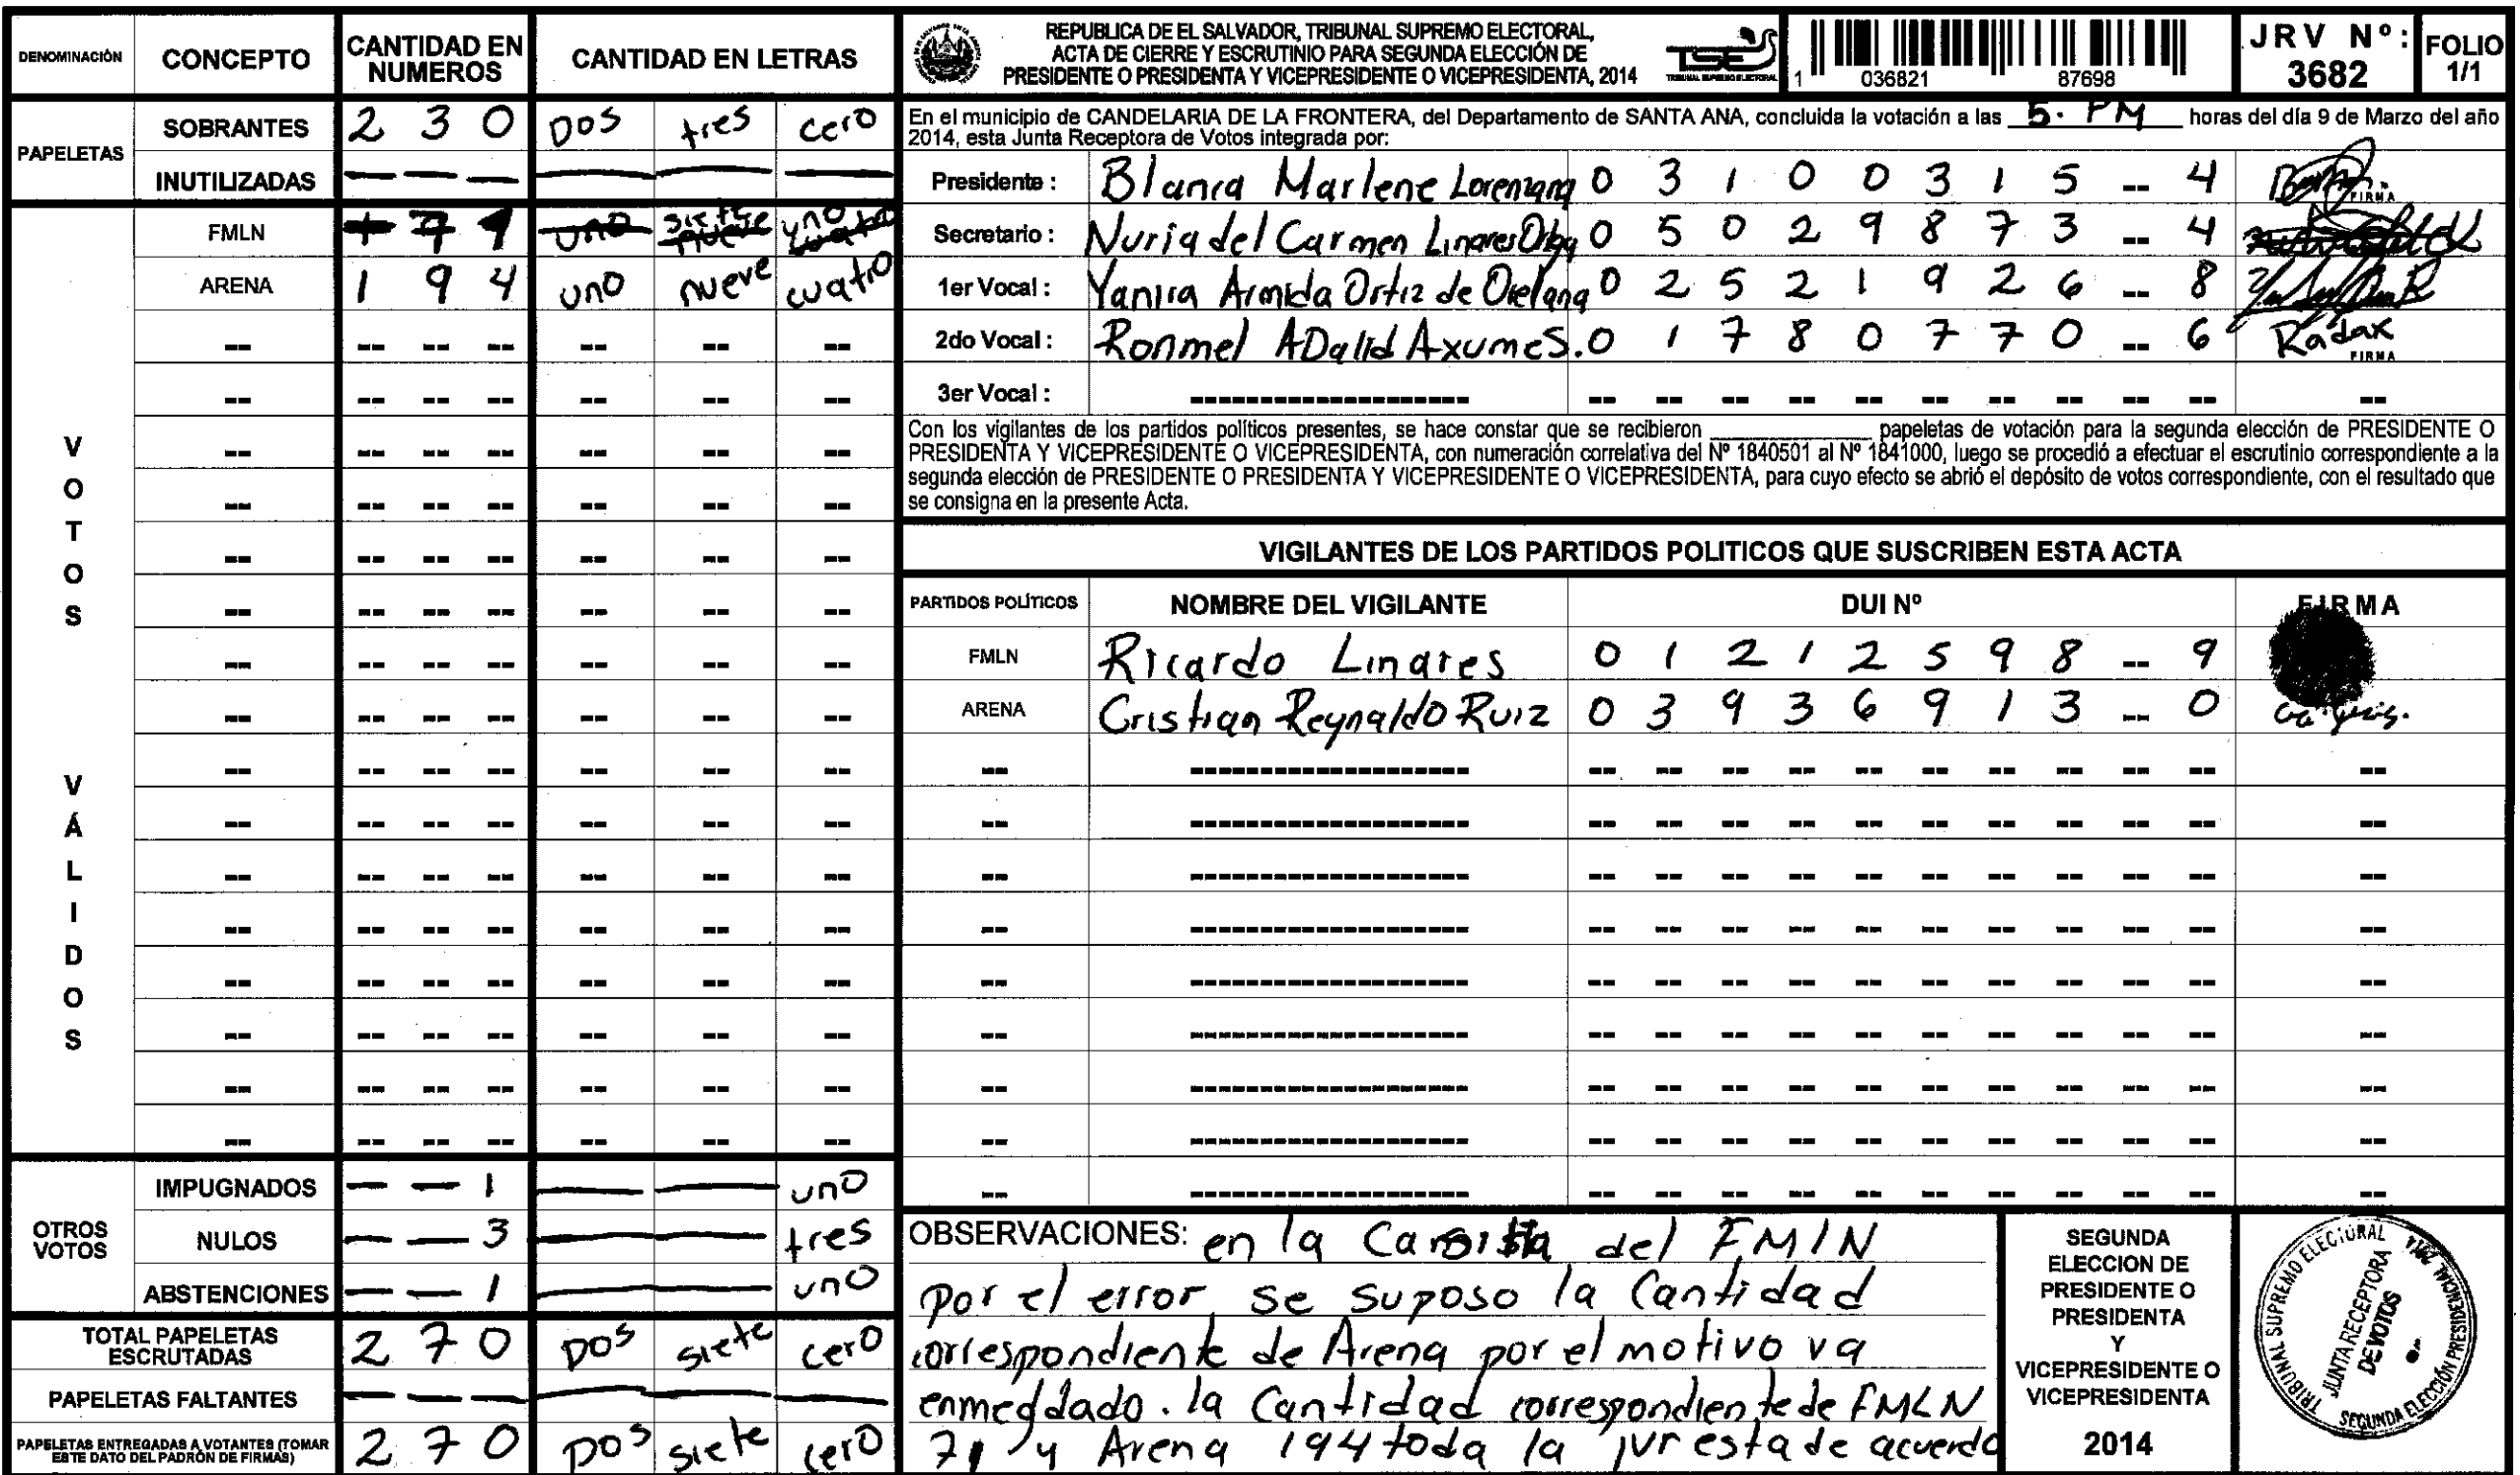 DENOMINACIÓN CONCEPTO CANTIDAD EN NUMEROS CANTIDAD EN LETRAS
PAPELETAS
SOBRANTES 2 3 0 DOS tres cero
INUTILIZADAS — — — — — —
VOTOS VÁLIDOS
FMLN 7 1 siete uno
ARENA 1 9 4 uno nueve cuatro
OTROS VOTOS
IMPUGNADOS — — 1 — — uno
NULOS — — 3 — — tres
ABSTENCIONES — — 1 — — uno
TOTAL PAPELETAS ESCRUTADAS 2 7 0 DOS siete cero
PAPELETAS FALTANTES — — — — — —
PAPELETAS ENTREGADAS A VOTANTES (TOMAR ESTE DATO DEL PADRÓN DE FIRMAS) 2 7 0 DOS siete cero
REPUBLICA DE EL SALVADOR, TRIBUNAL SUPREMO ELECTORAL,
ACTA DE CIERRE Y ESCRUTINIO PARA SEGUNDA ELECCIÓN DE
PRESIDENTE O PRESIDENTA Y VICEPRESIDENTE O VICEPRESIDENTA, 2014
TSE
TRIBUNAL SUPREMO ELECTORAL
1 036821 87698
JRV Nº: 3682
FOLIO 1/1
En el municipio de CANDELARIA DE LA FRONTERA, del Departamento de SANTA ANA, concluida la votación a las 5. PM horas del día 9 de Marzo del año
2014, esta Junta Receptora de Votos integrada por:
Presidente : Blanca Marlene Lorenzana 0 3 1 0 0 3 1 5 -- 4 FIRMA
Secretario : Nuria del Carmen Linares 0 5 0 2 9 8 7 3 -- 4
1er Vocal : Yanira Armida Ortiz de Orellana 0 2 5 2 1 9 2 6 -- 8
2do Vocal : Ronmel ADalid Axume S. 0 1 7 8 0 7 7 0 -- 6 Radax FIRMA
3er Vocal : -- -- -- -- -- -- -- -- -- -- --
Con los vigilantes de los partidos políticos presentes, se hace constar que se recibieron ____ papeletas de votación para la segunda elección de PRESIDENTE O
PRESIDENTA Y VICEPRESIDENTE O VICEPRESIDENTA, con numeración correlativa del Nº 1840501 al Nº 1841000, luego se procedió a efectuar el escrutinio correspondiente a la
segunda elección de PRESIDENTE O PRESIDENTA Y VICEPRESIDENTE O VICEPRESIDENTA, para cuyo efecto se abrió el depósito de votos correspondiente, con el resultado que
se consigna en la presente Acta.
VIGILANTES DE LOS PARTIDOS POLITICOS QUE SUSCRIBEN ESTA ACTA
PARTIDOS POLÍTICOS NOMBRE DEL VIGILANTE DUI Nº FIRMA
FMLN Ricardo Linares 0 1 2 1 2 5 9 8 -- 9
ARENA Cristian Reynaldo Ruiz 0 3 9 3 6 9 1 3 -- 0
OBSERVACIONES: en la del FMLN
por el error se suposo la Cantidad
correspondiente de Arena por el motivo va
enmeddado. la Cantidad correspondiente de FMLN
71 y Arena 194 toda la jvr esta de acuerdo
SEGUNDA
ELECCION DE
PRESIDENTE O
PRESIDENTA
Y
VICEPRESIDENTE O
VICEPRESIDENTA
2014
TRIBUNAL SUPREMO ELECTORAL
JUNTA RECEPTORA
DE VOTOS
SEGUNDA ELECCIÓN PRESIDENCIAL 2014